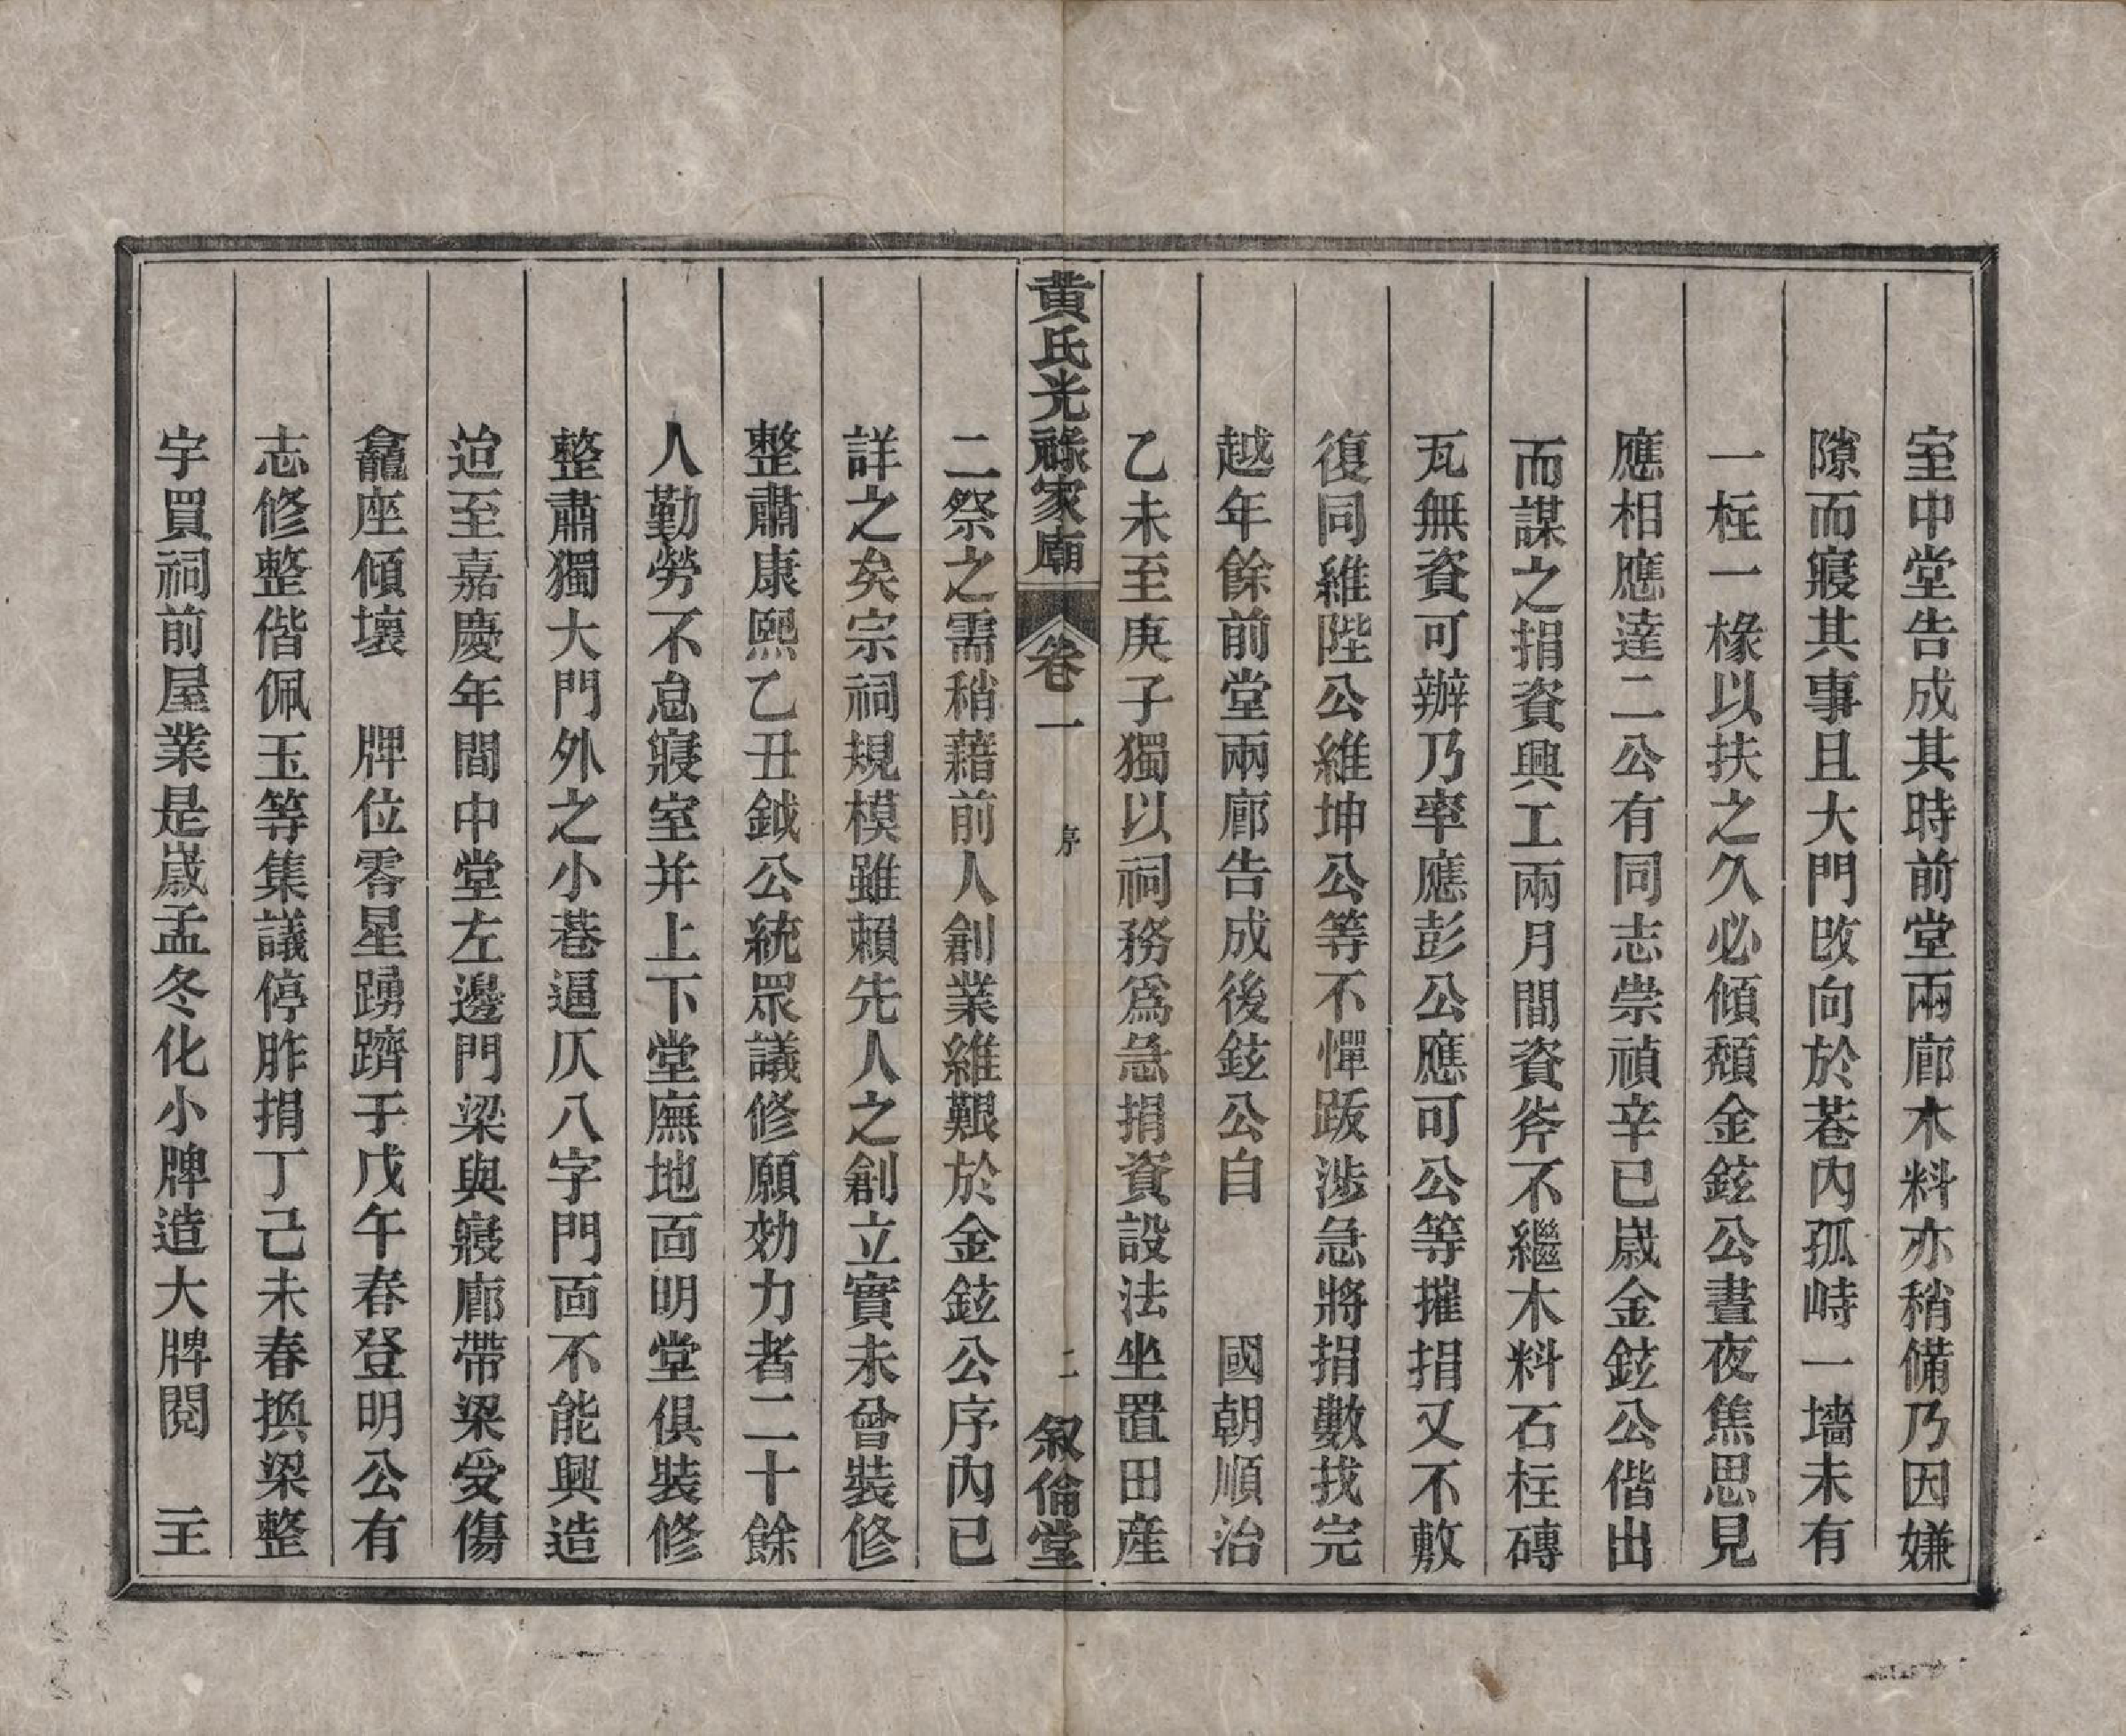 室中堂告成其時前堂兩廊木料亦稍備乃因嫌
隙而寢其事且大門改向於巷內孤峙一墻未有
一柱一椽以扶之久必傾頹金鉉公晝夜焦思見
應相應達二公有同志崇禎辛巳歲金鉉公偕出
而謀之捐資興工兩月間資斧不繼木料石柱磚
瓦無資可辦乃率應彭公應可公等摧捐又不敷
復同維陛公維坤公等不憚跋涉急將捐數找完
越年餘前堂兩廊告成後鉉公自　國朝順治
乙未至庚子獨以祠務為急捐資設法坐置田産
黃氏光祿家廟　卷一　序　二　叙倫堂
二祭之需稍藉前人創業維艱於金鉉公序內已
詳之矣宗祠規模雖賴先人之創立實未曾裝修
整肅康熙乙丑鉞公統眾議修願効力者二十餘
人勤勞不怠寢室并上下堂廡地面明堂俱裝修
整肅獨大門外之小巷逼仄八字門面不能興造
迨至嘉慶年間中堂左邊門梁與寢廊帶梁受傷
龕座傾壞　牌位零星踴躋于戊午春登明公有
志修整偕佩玉等集議停胙捐丁己未春換梁整
宇買祠前屋業是歲孟冬化小牌造大牌閱　二主